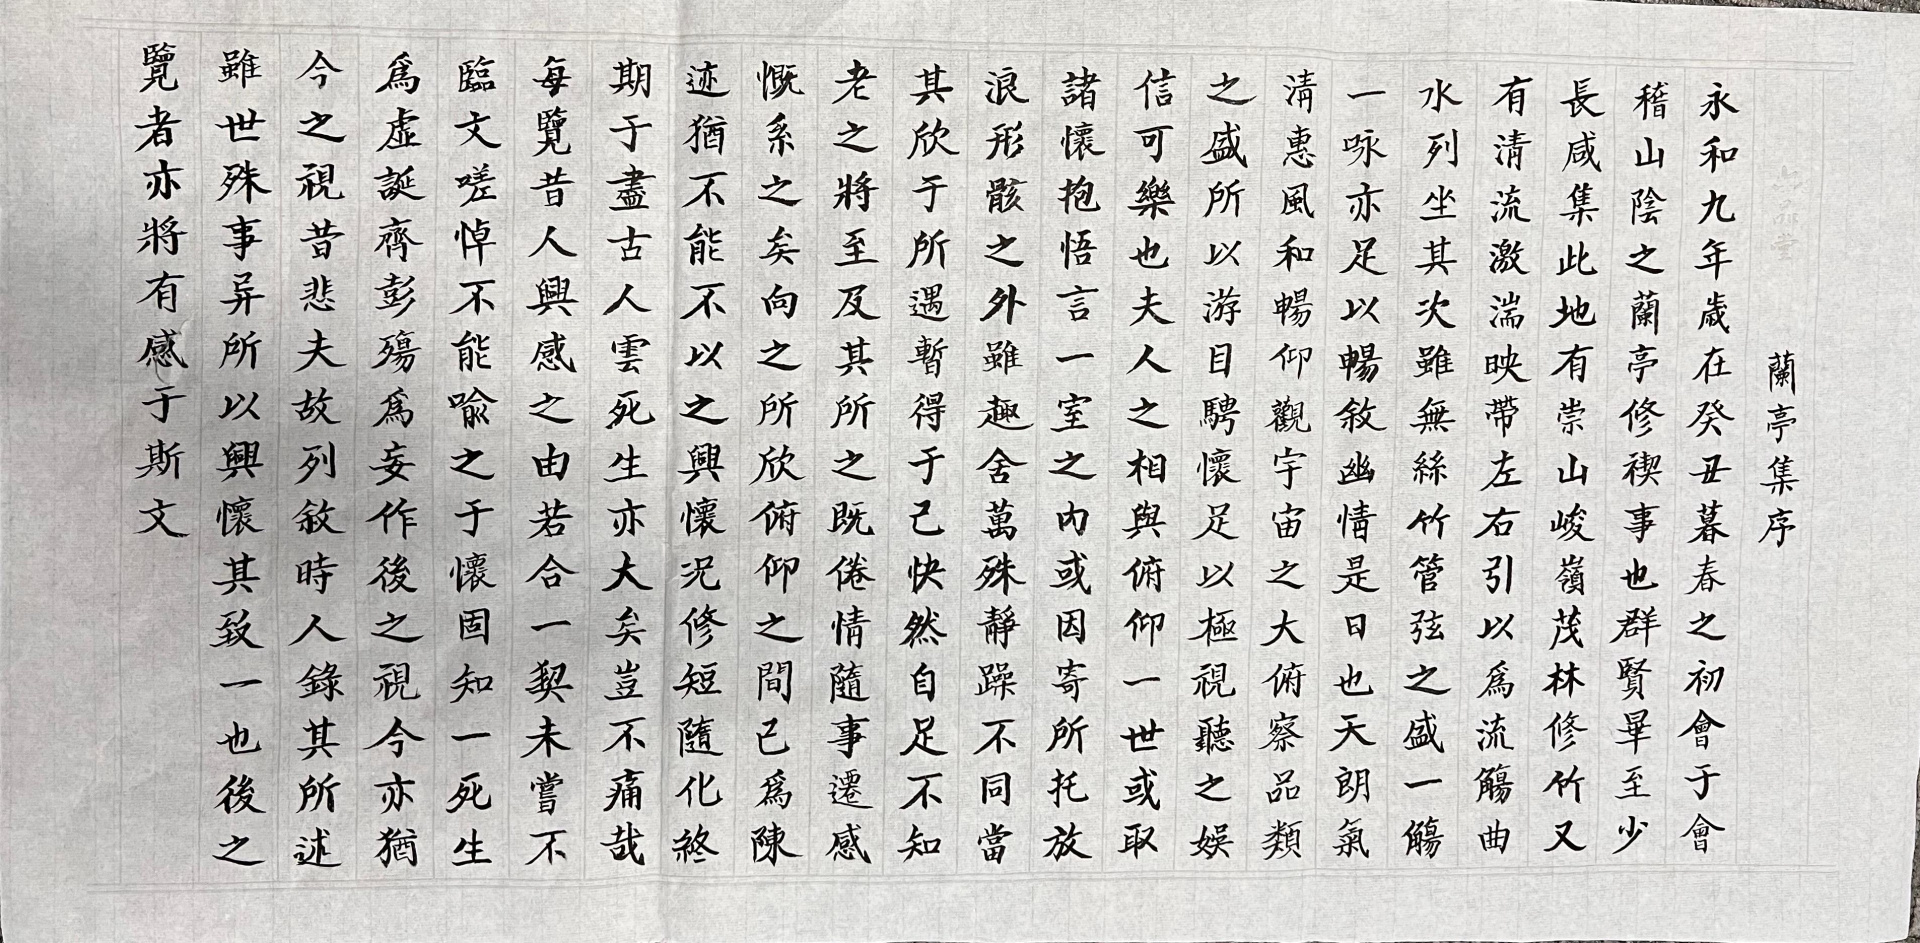 蘭亭集序
永和九年歲在癸丑暮春之初會于會
稽山陰之蘭亭修禊事也群賢畢至少
長咸集此地有崇山峻嶺茂林修竹又
有清流激湍映帶左右引以為流觴曲
水列坐其次雖無絲竹管弦之盛一觴
一咏亦足以暢敘幽情是日也天朗氣
清惠風和暢仰觀宇宙之大俯察品類
之盛所以游目騁懷足以極視聽之娛
信可樂也夫人之相與俯仰一世或取
諸懷抱悟言一室之內或因寄所托放
浪形骸之外雖趣舍萬殊靜躁不同當
其欣于所遇暫得于己快然自足不知
老之將至及其所之既倦情隨事遷感
慨系之矣向之所欣俯仰之間已為陳
迹猶不能不以之興懷況修短隨化終
期于盡古人雲死生亦大矣豈不痛哉
每覽昔人興感之由若合一契未嘗不
臨文嗟悼不能喻之于懷固知一死生
為虛誕齊彭殤為妄作後之視今亦猶
今之視昔悲夫故列敘時人錄其所述
雖世殊事异所以興懷其致一也後之
覽者亦將有感于斯文